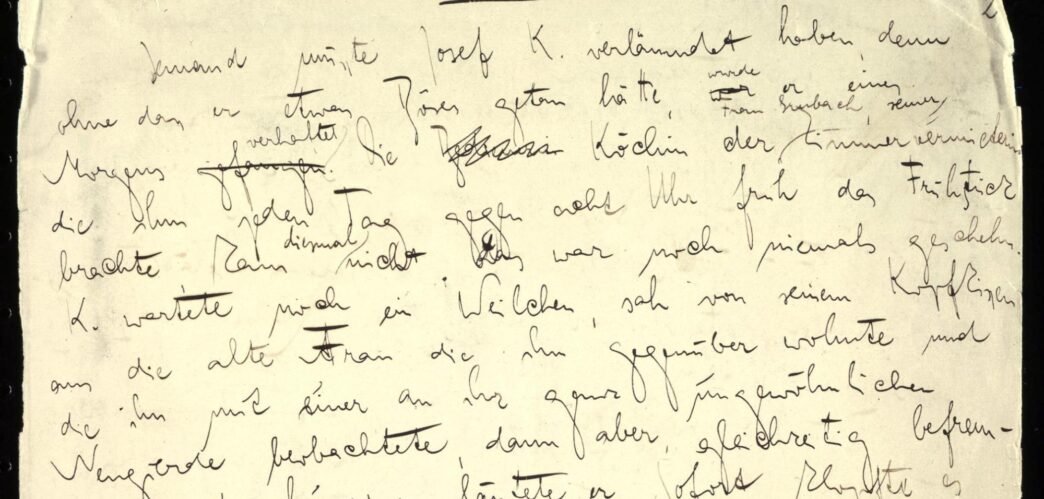 2
Jemand musste Josef K. verläumdet haben, denn
ohne dass er etwas Böses getan hätte, war wurde er eines
Morgens gefangen verhaftet. Die Köchin der Zimmervermieterin Frau Grubach seiner
die ihm jeden Tag gegen acht Uhr früh das Frühstück
brachte kam diesmal nicht. Das war noch niemals geschehn.
K. wartete noch ein Weilchen, sah von seinem Kopfkissen
aus die alte Frau die ihm gegenüber wohnte und
die ihn mit einer an ihr ganz ungewöhnlichen
Neugierde beobachtete, dann aber, gleichzeitig befrem-
läutete er. Sofort klopfte es